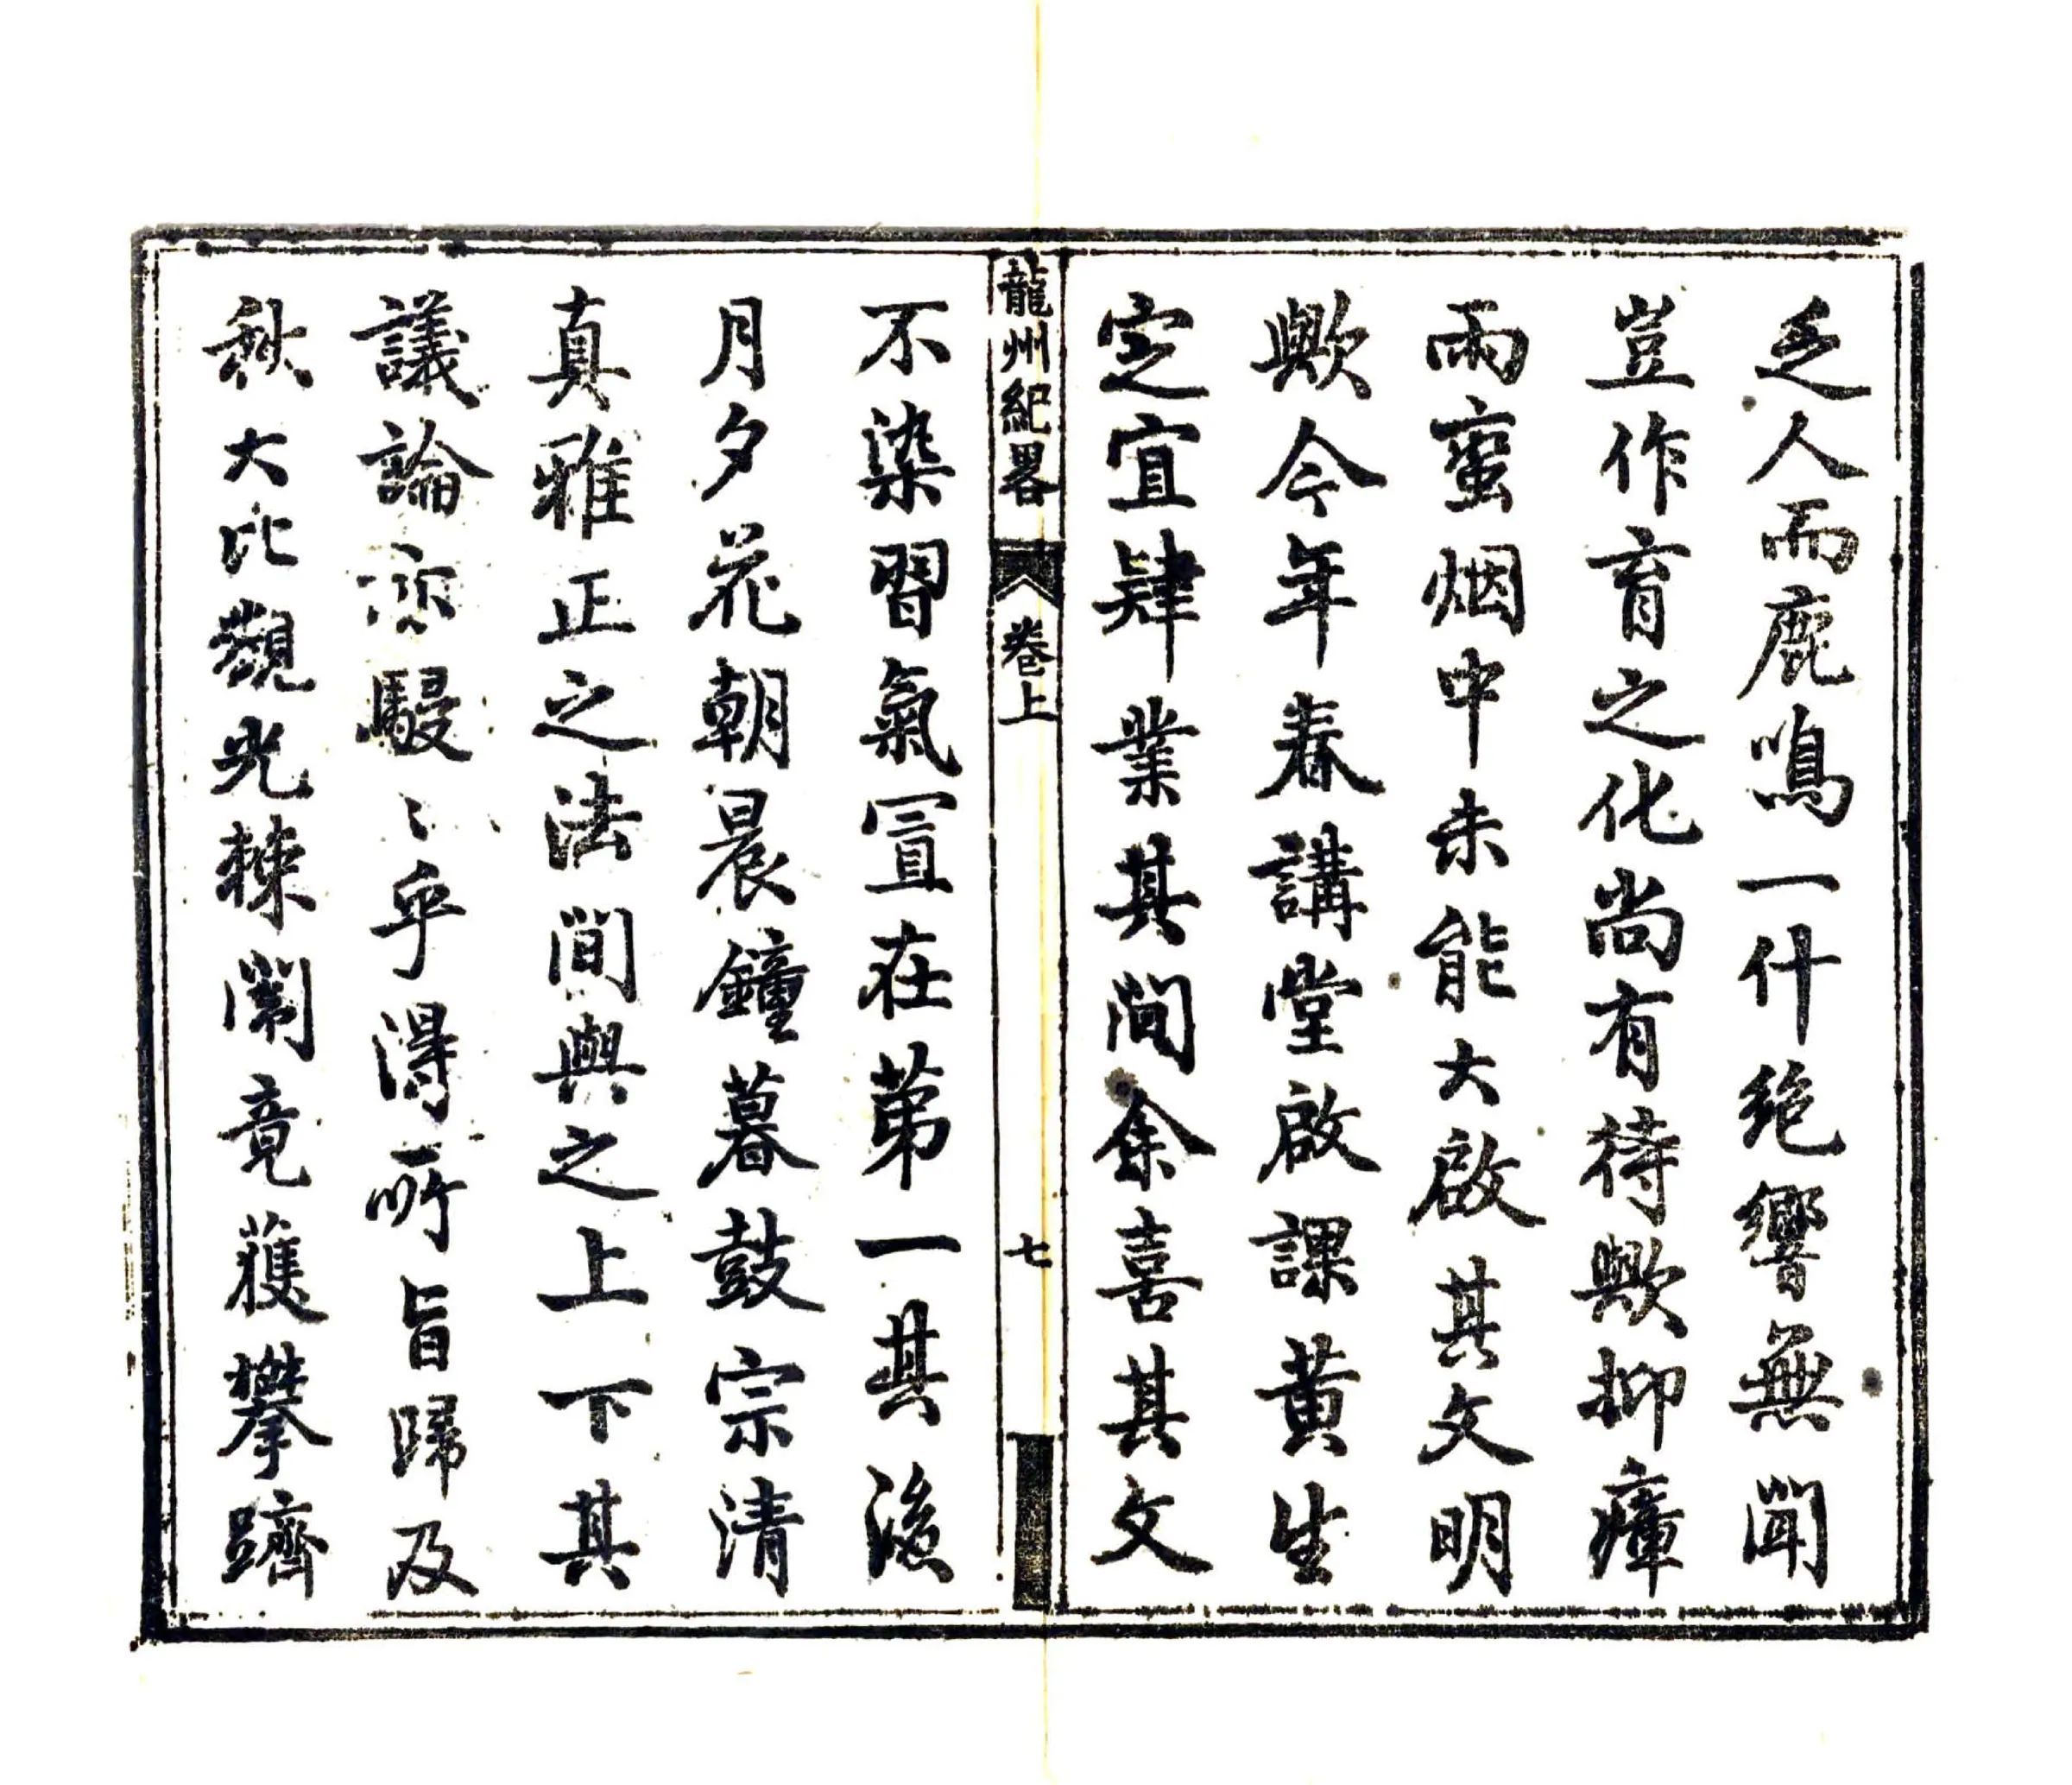 乏人而鹿鳴一什绝響無聞
豈作育之化尚有待歟抑瘴
雨蛮烟中未能大啟其文明
歟今年春講堂啟課黄生
定宜肄業其間余喜其文
龍州紀畧 卷上 七
不染習氣置在苐一其後
月夕花朝晨鐘暮鼓宗清
真雅正之法間與之上下其
議論亦駸〻乎得所旨歸及
秋大比觀光棘闈竟獲攀躋